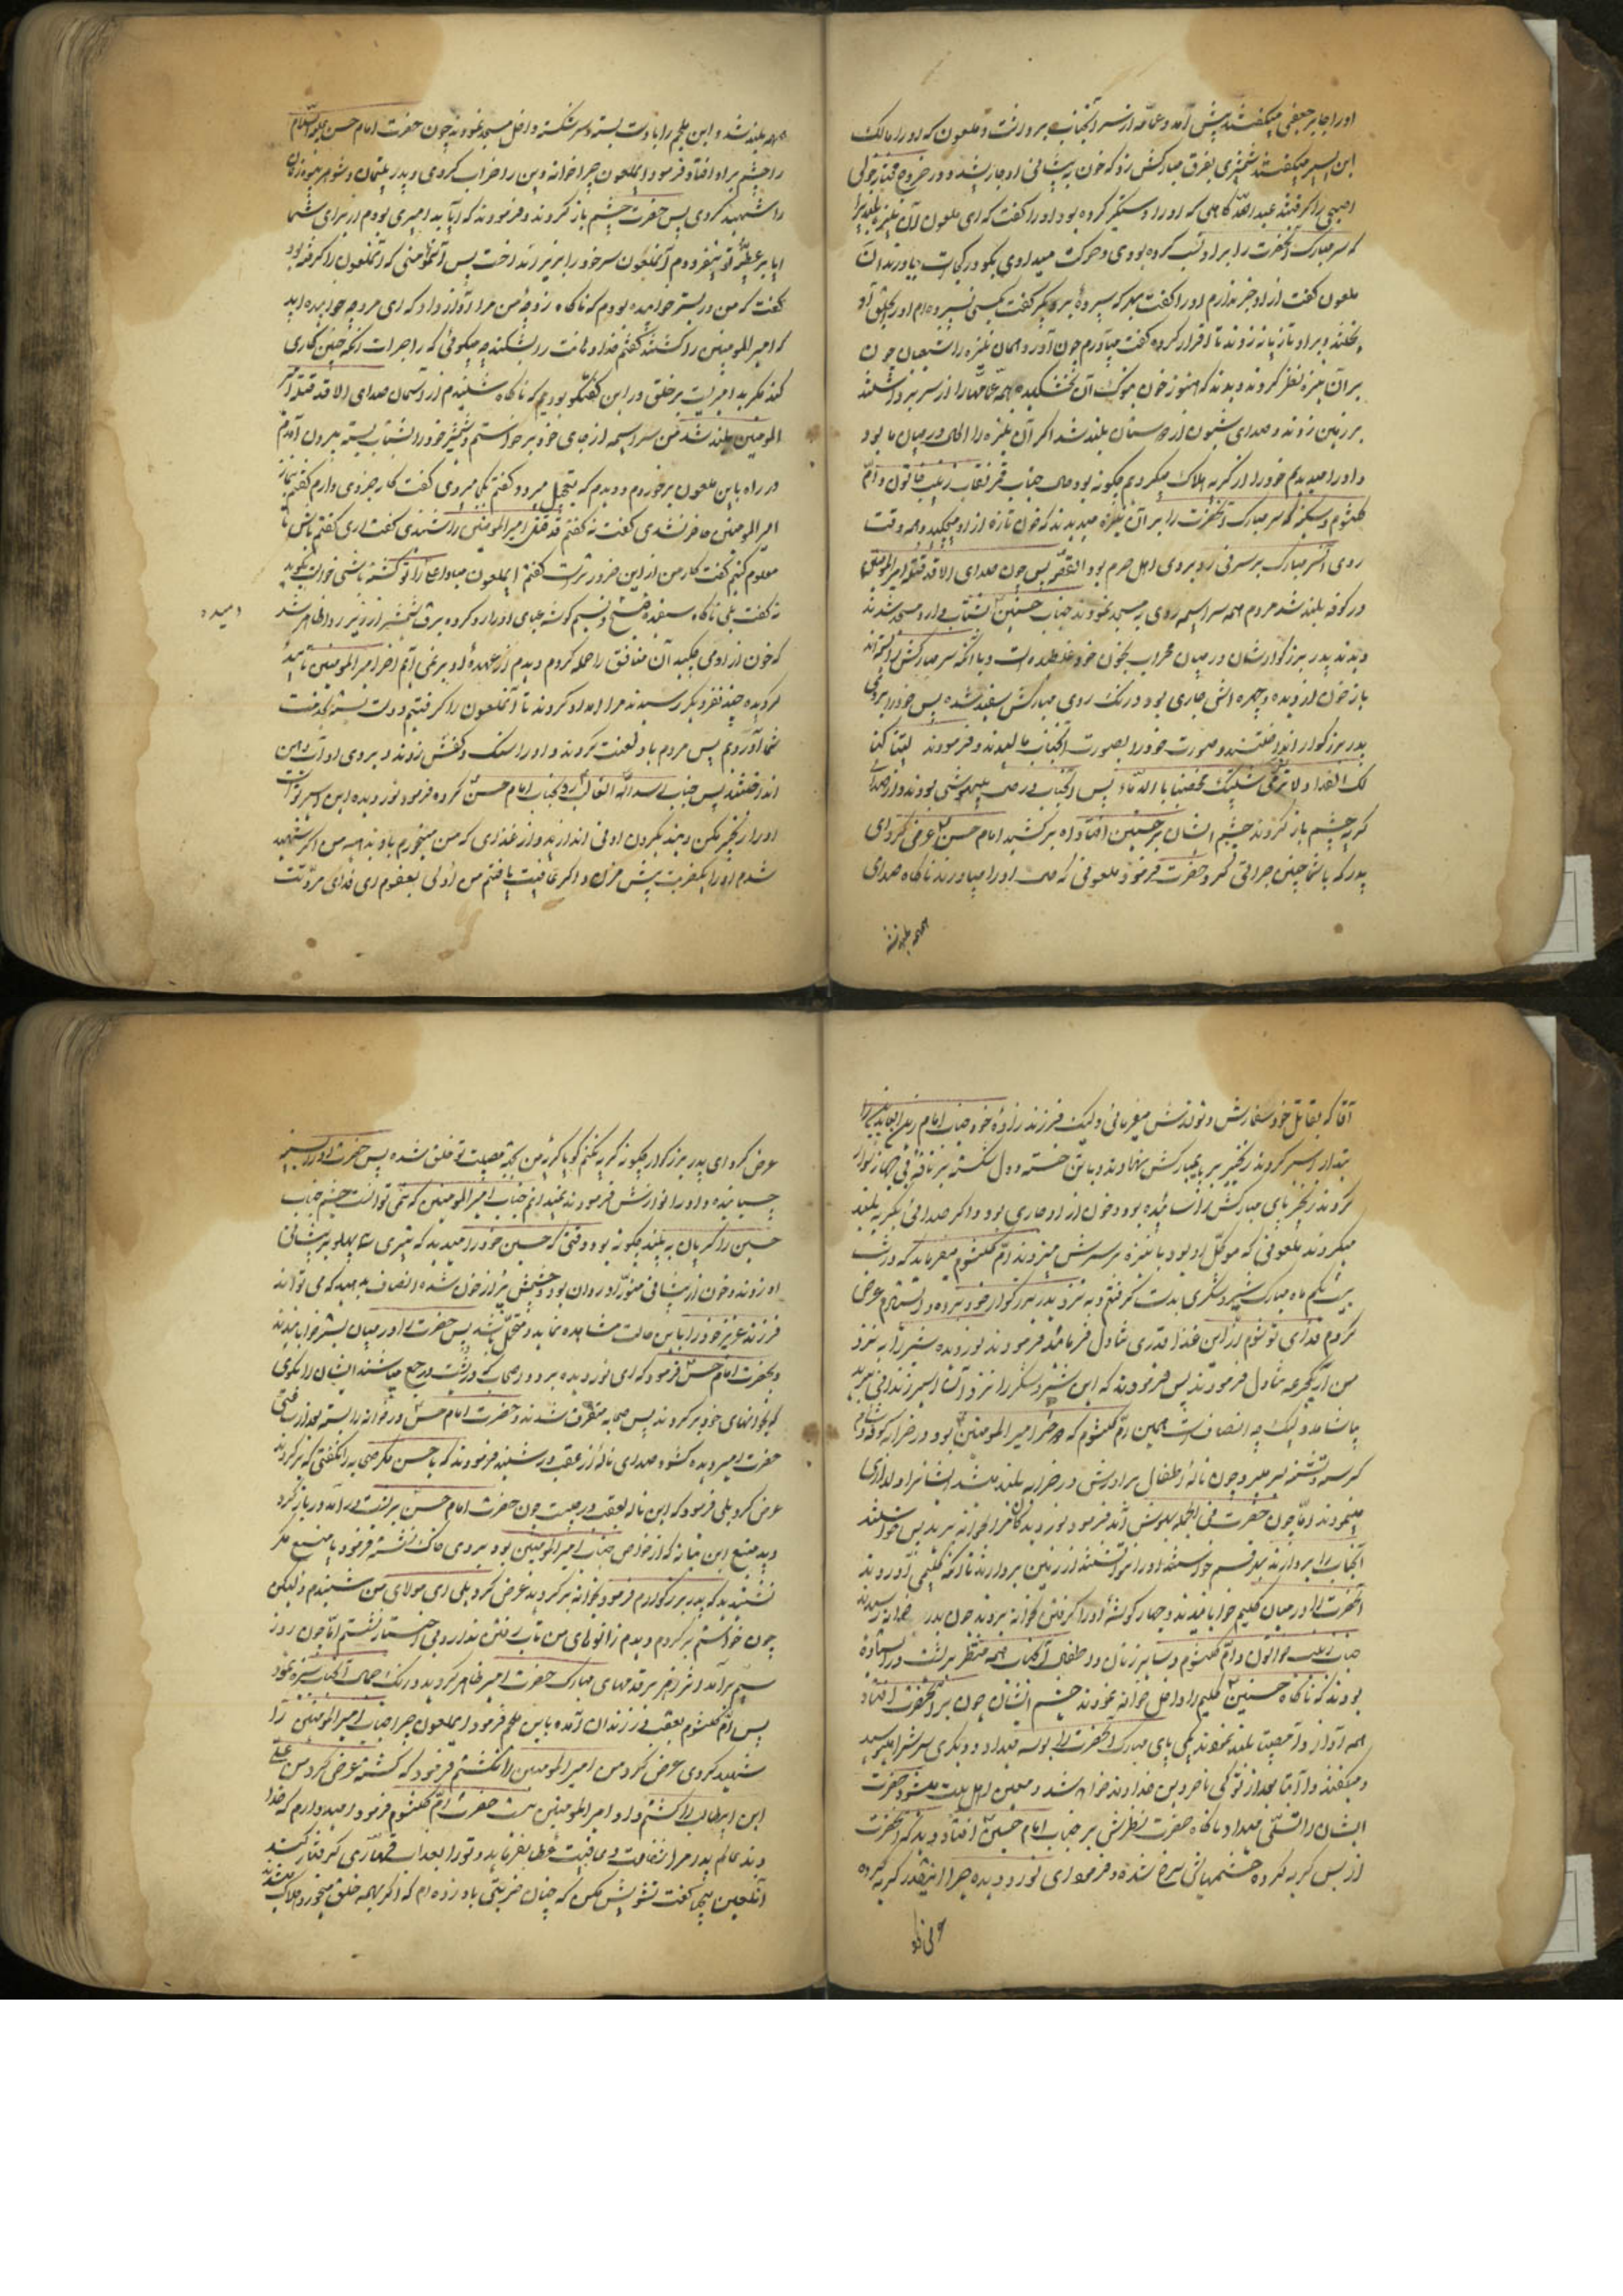 اورا جابر جعفی میگفتند پیش آمد و عمامه از سر آنجناب برداشت و ملعون که اورا مالک
ابن یسر میگفتند شمشیری بفرق مبارکش زد که خون به پیشانی او جاری شد و در خروج مختار خولی
اصبحی را گرفتند عبدالله کامل که اورا دستگیر کرده بود اورا گفت که ای ملعون آن نیزه بلند را
که سر مبارک آنحضرت را بر او نصب کرده بودی و حرکت میدادی بگو در کجاست بیاورند آن
ملعون گفت از او خبر ندارم اورا گفت بهر که سپرده بگو گفت بکسی نسپرده ام اورا بحلق او
بر او تازیانه زدند تا اقرار کرده گفت میآورم چون آورد همان نیزه را شیعیان چون
بر آن نیزه نظر کردند دیدند که هنوز خون بنوک آن نخشکیده همه عمامها را از سر برداشتند
بر زمین زدند و صدای شیون از دوستان بلند شد اگر آن نیزه را الحال در میان ما بود
و اورا میدیدیم خود را از گریه هلاک میکردیم چگونه بود حال جناب زینب خاتون و ام
کلثوم و سکینه که سر مبارک آنحضرت را بر آن نیزه میدیدند که خون تازه از او میچکید و همه وقت
روی آن سر مبارک بر سر نی رو بروی اهل حرم بود القصه پس چون صدای الا قد قتل امیرالمؤمنین
در کوفه بلند شد مردم همه سراسیمه روی به مسجد نمودند جناب حسنین بشتاب وارد مسجد شدند
دیدند پدر بزرگوارشان در میان محراب بخون خود غلطیده است و با آنکه سر مبارکش را بسته اند
باز خون از دیده و چهره اش جاری بود و رنگ روی مبارکش سفید شده پس خود را بروی
پدر بزرگوار انداختند و صورت خود را بصورت آنجناب مالیدند و فرمودند لیتنا کنا
لک الفداء ولا نری شیبتک مخضبا بالدماء پس آنجناب در حال بیهوشی بودند و از صدای
گریه چشم باز کردند چشم ایشان بر حسنین افتاد آه برکشید امام حسن عرض کرد ای
پدر که با شما چنین جراتی کرد حضرت فرمود ملعونی که حال اورا میاورند ناگاه صدای
همهمه بلند شد
همهمه بلند شد و ابن ملجم را با دست بسته و سر شکسته داخل مسجد نمودند چون حضرت امام حسن علیه السلام
را چشم بر او افتاد فرمود ایملعون چرا خانه دین را خراب کردی و پدر یتیمان و شوهر بیوه زنان
را شهید کردی پس حضرت چشم باز کردند و فرمودند که آیا بد امیری بودم از برای شما
آیا بر عطیه تو نیفزودم آنملعون سر خود را بزیر انداخت پس آنمؤمنی که آنملعون را گرفته بود
گفت که من در بستر خوابیده بودم که ناگاه زوجه من مرا آواز داد که ای مرد چه خوابیده اید
که امیرالمؤمنین را کشتند گفتم خدا دهانت را بشکند چه میگوئی که را جرات آنکه چنین کاری
کند مگر بد امیریست بر خلق در این گفتگو بودیم که ناگاه شنیدم از آسمان صدای الا قد قتل امیر
المؤمنین بلند شد من سراسیمه از جای خود برخواستم و شمشیر خود را بشتاب بسته بیرون آمدم
در راه باین ملعون برخوردم و دیدم که بتعجیل میرود گفتم بکجا میروی گفت کار ضروری دارم گفتم بنماز
امیرالمؤمنین حاضر نشدی گفت نه گفتم قد قتل امیرالمؤمنین را شنیدی گفت آری گفتم باش تا
معلوم کنم گفت کار من از این ضرورتر است گفتم ایملعون مبادا آقا را تو کشته باشی خواست بگوید
نه گفت بلی ناگاه نسیم گوشه عبای اورا رد کرده برق شمشیر از زیر ردا ظاهر شد
دمیده
که خون از او می چکید آن منافق را حمله کردم دیدم از عهده او بر نمی آیم آخر امیرالمؤمنین تائید
کردیده چند نفر دیگر رسیدند مرا امداد کردند تا آنملعون را گرفتیم و دست بسته بخدمت
شما آوردیم پس مردم باو لعنت کردند و اورا سنگ و کفش زدند و بروی او آب دهن
انداختند پس جناب اسدالله الغالب رو بجناب امام حسن کرده فرمود نور دیده این اسیر تست
اورا زنجیر مکن و بند بگردن او نی اندازید و از غذای که من میخورم باو بدهید من اگر شهید
شدم اورا یکضربت بیش مزن و اگر عافیت یافتم من اولی بعفوم ای فدای مروتت
آقا که بقاتل خود سفارش و نوازش میفرمائی و لیک فرزند زاده خود جناب امام زین العابدین را
بیمار اسیر کردند زنجیر بر پای مبارکش نهادند و با تن خسته و دل شکسته بر ناقه بی جهاز سوار
کردند زنجیر پای مبارکش را سائیده بود و خون از او جاری بود و اگر صدائی بگریه بلند
میکردند ملعونی که موکل او بود با نیزه بر سرش میزدند ام کلثوم میفرماید که در شب
بیست یکم ماه مبارک شیر و شکری بدست گرفتم و به نزد پدر بزرگوار خود برده و ایستادم عرض
کردم فدای تو شوم از این غذا قدری تناول فرمائید فرمودند نور دیده شیر را به نزد
من آر یکجرعه تناول فرمودند پس فرمودند که این شیر و شکر را نزد آن اسیر زندانی برید
یا شاه ولیک چه انصافست همین ام کلثوم که دختر امیرالمؤمنین بود در خرابه کوفه و شام
گرسنه و تشنه بسر میبرد چون ناله اطفال برادرش در خرابه بلند میشد ایشانرا دلداری
مینمودند اما چون حضرت فی الجمله بهوش آمد فرمود نور دیدگان مرا بخانه برید پس خواستند
آنجناب را بردارند بهر قسم خواستند اورا نتوانستند از زمین بردارند تا آنکه گلیمی آوردند
آنحضرت را در میان گلیم خوابانیدند و چهار گوشه اورا گرفتند بخانه بردند چون بدر خانه رسیدند
جناب زینب خواتون و ام کلثوم و سایر زنان و اطفال آنجناب همه منتظر بر پشت در ایستاده
بودند که ناگاه حسنین گلیم را داخل خانه نمودند چشم ایشان چون بر آنحضرت افتاد
همه آواز وا مصیبتا بلند نمودند یکی پای مبارک آنحضرت را بوسه میداد و دیگری سرش را میبوسید
و میگفتند وا ابتا بعد از تو کی ناصر دین خدا و ند خواهد شد و معین اهل بیت میشود حضرت
ایشان را تسلی میداد ناگاه حضرت نظرش بر جناب امام حسین افتاد دید که آنحضرت
از بس گریه کرده چشمهایش سرخ شده و فرمود ای نور دو دیده چرا اینقدر گریه کرده
عرض کرد
عرض کرد ای پدر بزرگوار چگونه گریه نکنم گویا گریه من بجهة مصیبت تو خلق شده پس حضرت اورا بسینه
چسبانیده و اورا نوازش فرمودند نمیدانم جناب امیرالمؤمنین که نمی توانست چشم جناب
حسین را گریان به بیند چگونه بود وقتی که حسین خود را میدید که تیری سه پهلو به پیشانی
او زدند و خون از پیشانی منور او روان بود و چشمش پر از خون شده انصاف بدهید که می تواند
فرزند عزیز خود را باین حالت مشاهده نماید و متحمل شد پس حضرت را در میان بستر خوابانیدند
و بحضرت امام حسن فرمود که ای نور دیده برو و اصحاب که در پشت در جمع میباشند ایشان را بگوی
که بخانهای خود برگردند پس صحابه متفرق شدند و حضرت امام حسن در خوانه را بسته بعد از ساعتی
حضرت امیر دیده گشوده صدای ناله از عقب در شنید فرمودند که یا حسن مگر صحابه را نگفتی که برگردند
عرض کرد بلی فرمود که این ناله بعقب در چیست چون حضرت امام حسن بر پشت در آمد در باز کرد
دید میثم ابن نباته که از خواص جناب امیرالمؤمنین بود بروی خاک نشسته فرمود یا میثم مگر
نشنیدید که پدر بزرگوارم فرمود بخانه برگردید عرض کرد بلی ای مولای من شنیدم ولیکن
چون خواستم برگردم دیدم زانوهای من تاب رفتن ندارد بی اختیار نشستم اما چون روز
بیستم برآمد اثر زهر بر قدمهای مبارک حضرت امیر ظاهر گردید و رنگ جمال آنجناب سبز نمود
پس ام کلثوم بعقب در زندان آمده باین ملجم فرمود ایملعون چرا جناب امیرالمؤمنین را
شهید کردی عرض کرد من امیرالمؤمنین را نکشتم فرمود که کشته عرض کرد من علی
ابن ابیطالب را کشتم و او امیرالمؤمنین نیست حضرت ام کلثوم فرمود امیدوارم که خدا
وند عالم پدر مرا شفا و عافیت عطا بفرماید و تورا بعذاب قهاری گرفتار کند
آنلعین بیحیا گفت تشویش مکن که چنان ضربتی باو زده ام که اگر بهمه خلق میخورد هلاک میشدند